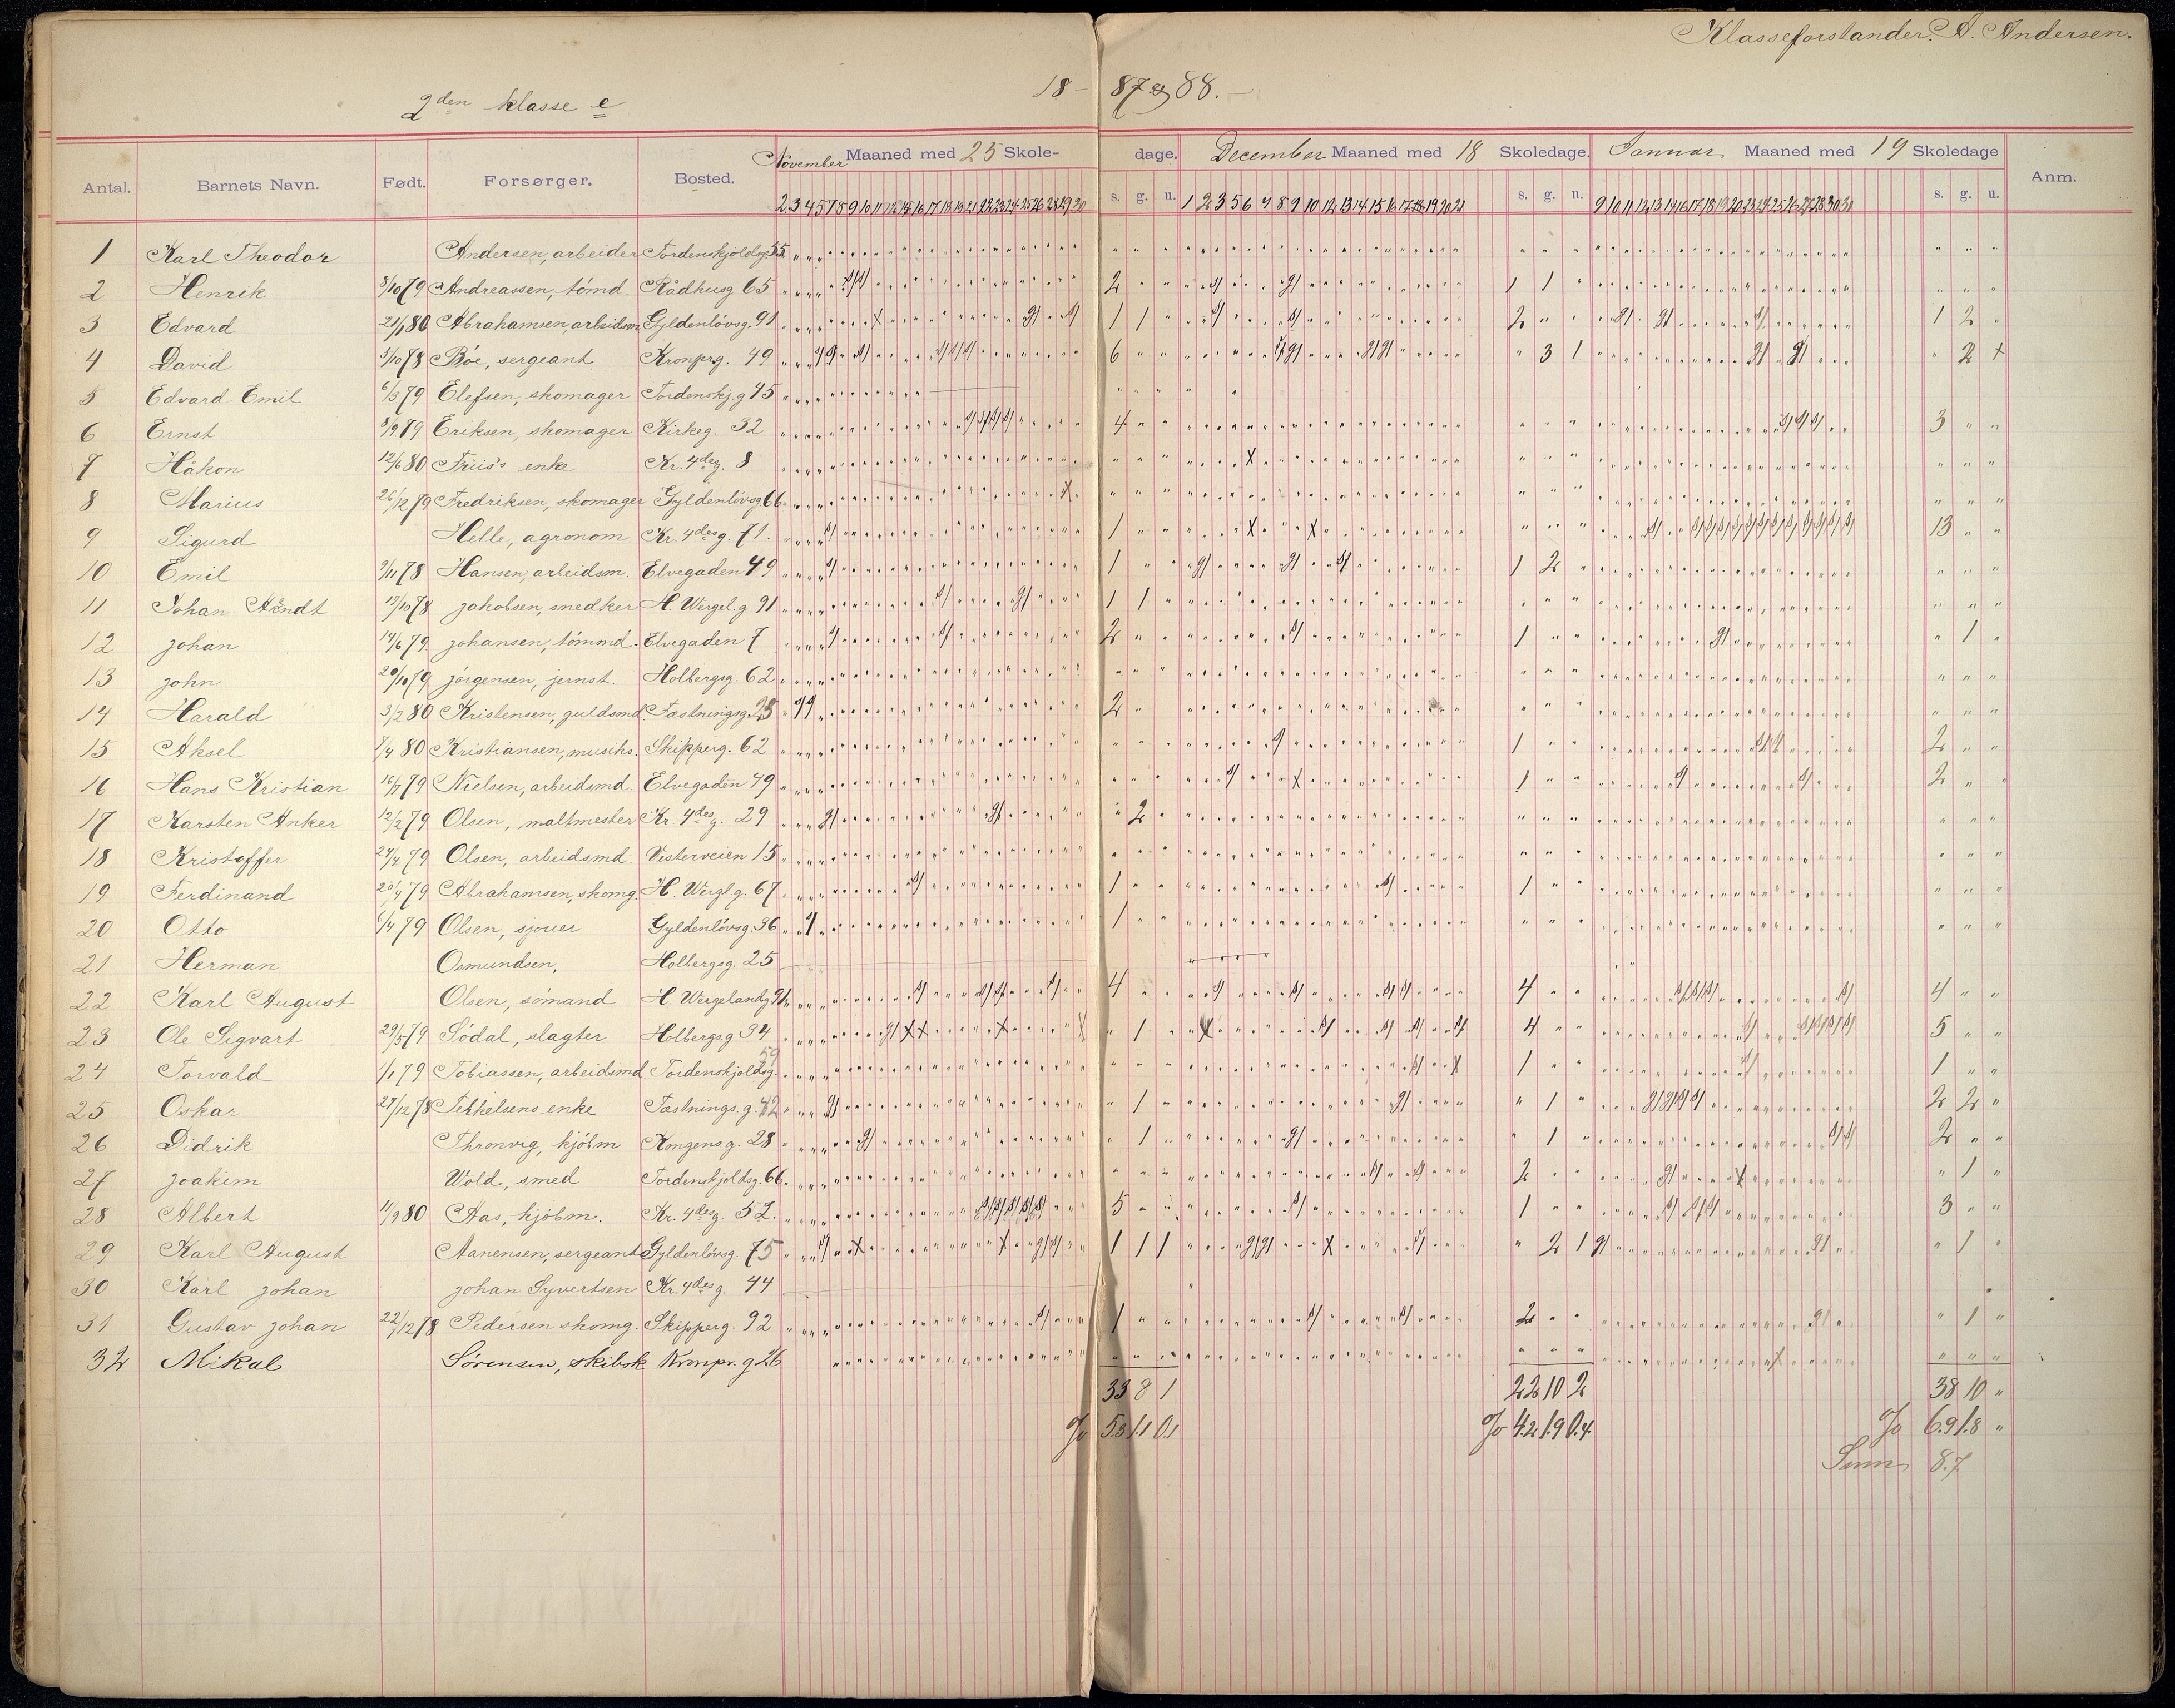 Klasseforstander. A. Andersen.
2den klasse e 18- 87 og 88. -
Antal. Barnets Navn. Født. Forsørger. Bosted. November Maaned med 25 Skole- dage. December Maaned med 18 Skoledage. Januar Maaned med 19 Skoledage Anm.
s. g. u. s. g. u. s. g. u.
1 Karl Theodor Andersen, arbeider Tordenskjoldsg 55
2 Henrik 8/10 79 Andreassen, tömd. Rådhusg 65 2 " " 1 1 " " " "
3 Edvard 21/1 80 Abrahamsen, arbeidsm Gyldenlövsg. 91 1 1 " 2 " " 1 2 "
4 David 3/10 78 Böe, sergeant Kronprg. 49 6 " " " 3 1 " 2 +
5 Edvard Emil 6/3 79 Elefsen, skomager Tordenskj.g 45
6 Ernst 8/9 79 Eriksen, skomager Kirkeg. 32 4 " " " " " 3 " "
7 Håkon 12/6 80 Friis's enke Kr. 4des g. 8
8 Marius 26/12 79 Fredriksen, skomager Gyldenlövsg 66
9 Sigurd Helle, agronom Kr. 4des g. 71. 1 " " " " " 13 " "
10 Emil 9/11 78 Hansen, arbeidsm. Elvegaden 49 1 " " 1 2 " " " "
11 Johan Arndt 19/10 78 jakobsen, snedker H. Wergel. g 91 1 1 " " " " " " "
12 johan 14/6 79 johansen, tömmd. Elvegaden 7 2 " " 1 " " " 1 "
13 john 20/10 79 jörgensen, jernst. Holbergsg. 62
14 Harald 3/2 80 Kristensen, guldsmd. Fæstningsg. 23 2 " " " " " " "
15 Aksel 7/4 80 Kristiansen, musiks. Skipperg. 62 " " " 1 " " 2 " "
16 Hans Kristian 16/7 79 Nielsen, arbeidsmd. Elvegaden 49 " " " 1 " " 2 " "
17 Karsten Anker 12/2 79 Olsen, maltmester Kr. 4des g. 29 " 2 " " " " " " "
18 Kristoffer 24/4 79 Olsen, arbeidsmd. Vesterveien 15
19 Ferdinand 20/4 79 Abrahamsen, skomg. H. Wergl. g. 67 1 " " 1 " " " " "
20 Otto 6/4 79 Olsen, sjouer Gyldenlövsg. 36 1 " " " " " " " "
21 Herman Osmundsen, Holbergsg. 25
22 Karl August Olsen, sömand H. Wergelandsg 91 4 " " 4 " " 4 " "
23 Ole Sigvart 29/5 79 Södal, slagter Holbergsg 34 " 1 " 4 " " 5 " "
24 Torvald 1/1 79 Tobiassen, arbeidsmd. Tordenskjoldsg. 59 " " " 1 " " 1 " "
25 Oskar 27/12 78 Tekkelsens enke Fæstnings. g. 42 " 1 " " 1 " 2 2 "
26 Didrik Thronvig, kjöbm Kongensg. 28 " 1 " " 1 " 2 " "
27 joakim Wold, smed Tordenskjoldsg. 66 " " " 2 " " " 1 "
28 Albert 11/9 80 Aas, kjöbm. Kr. 4des g. 52. 5 " " 1 " " 3 " "
29 Karl August Aanensen, sergeant Gyldenlövsg. 75 1 1 1 " 2 1 " 1 "
30 Karl johan johan Syvertsen Kr. 4des g. 44
31 Gustav johan 22/12 78 Pedersen skomg. Skipperg. 92 1 " " 2 " " " 1 "
32 Mikal Sörensen, skibsk Kronpr. g 26
33 8 1 22 10 2 38 10 "
% 5.3 1.1 0.1 % 4.2 1.9 0.4 % 6.9 1.8 "
Sum 8.7